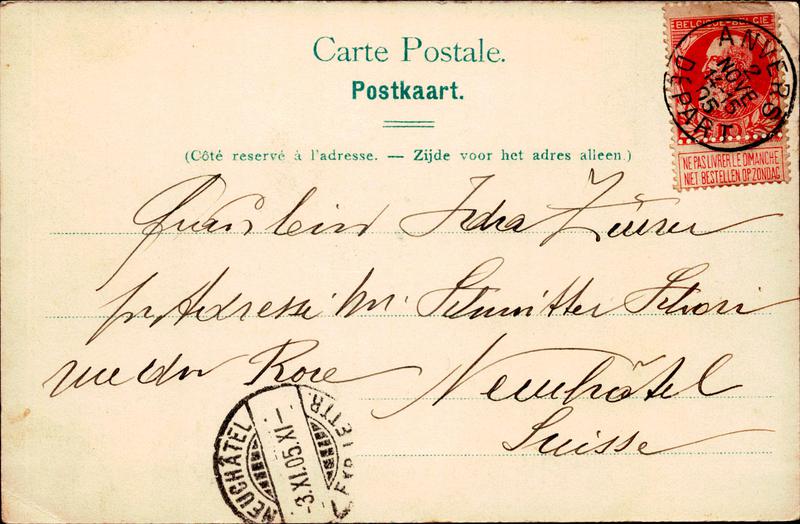 Carte Postale.
Postkaart.
(Côté reservé à l'adresse. — Zijde voor het adres alleen.)
BELGIQUE·BELGIE
NE PAS LIVRER LE DIMANCHE
NIET BESTELLEN OP ZONDAG
ANVERS
2
NOVE
05
DEPART
Fräulein Ida
pr Adresse Mr. Schmitter Schori
Neuchâtel
Suisse
NEUCHÂTEL
-3.XI.05.XI-
EXP. LETTR.